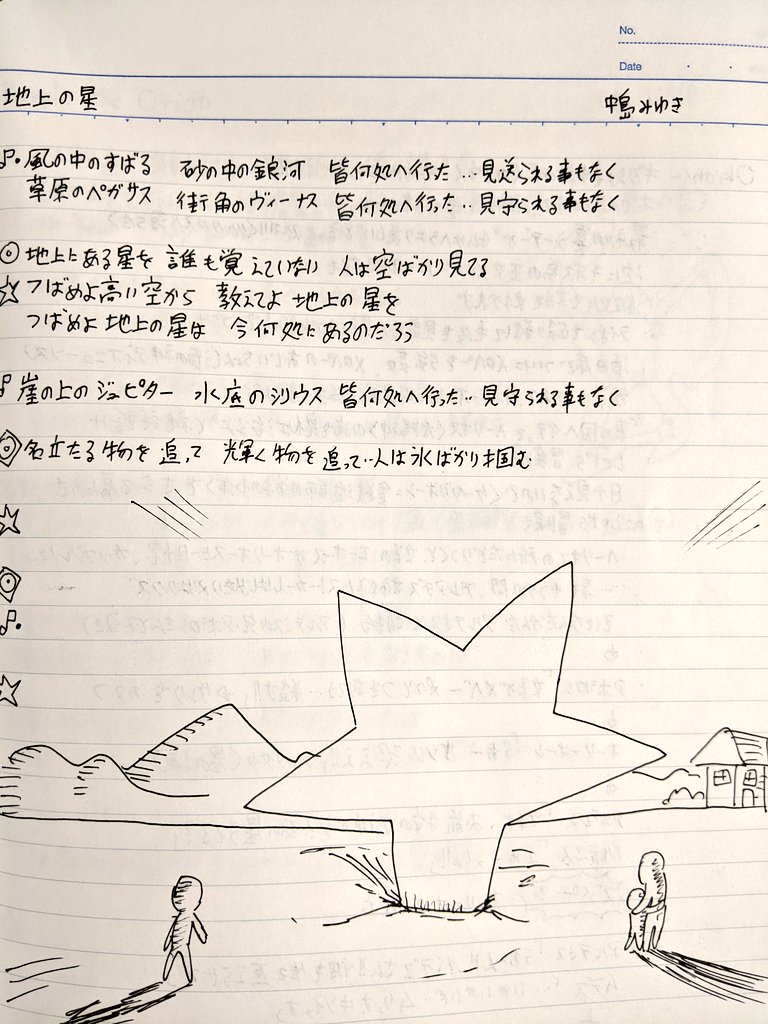 No.
Date
地上の星 中島みゆき
風の中のすばる 砂の中の銀河 皆何処へ行った…見送られる事もなく
草原のペガサス 街角のヴィーナス 皆何処へ行った…見守られる事もなく
地上にある星を 誰も覚えていない 人は空ばかり見てる
つばめよ高い空から 教えてよ 地上の星を
つばめよ 地上の星は 今何処にあるのだろう
崖の上のジュピター 水底のシリウス 皆何処へ行った…見守られる事もなく
名立たる物を追って 輝く物を追って…人は氷ばかり掴む